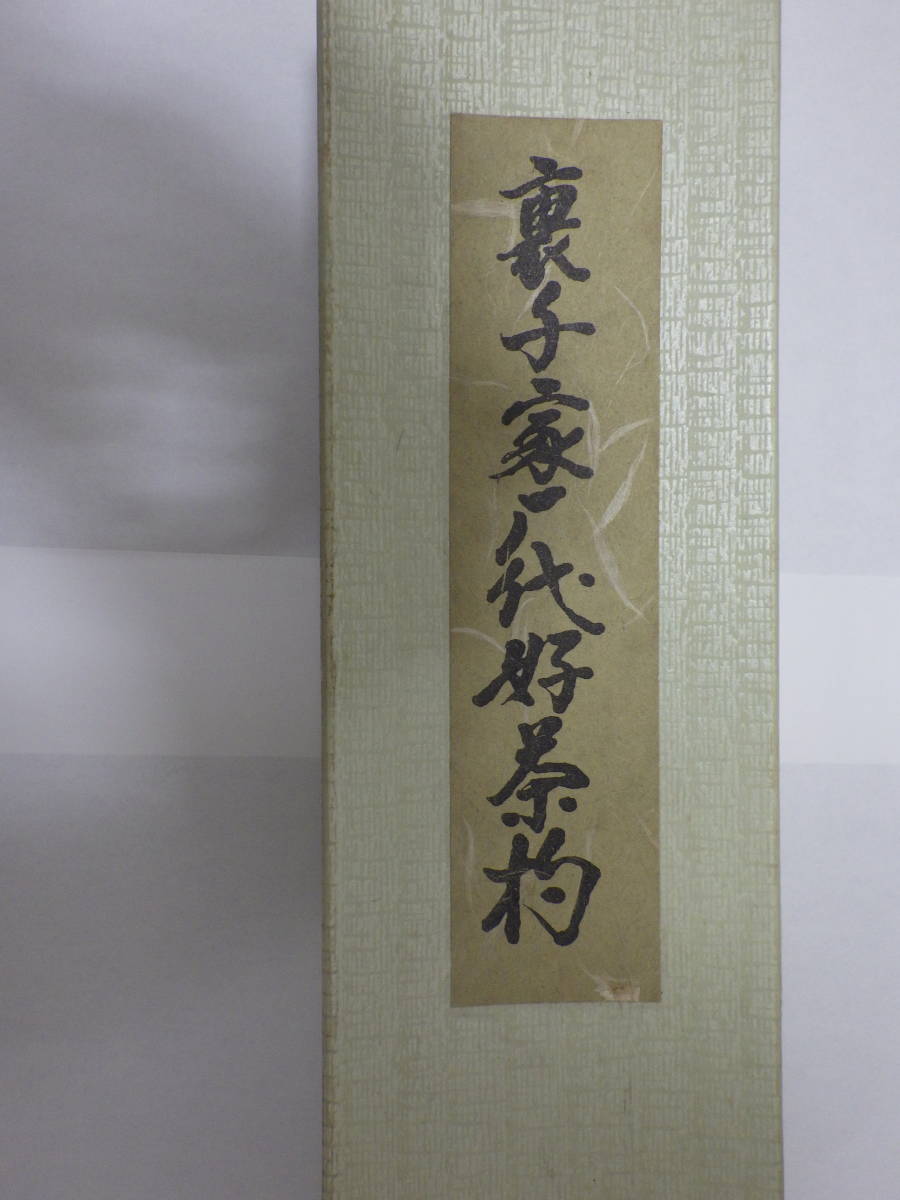 裏千家一代好茶杓